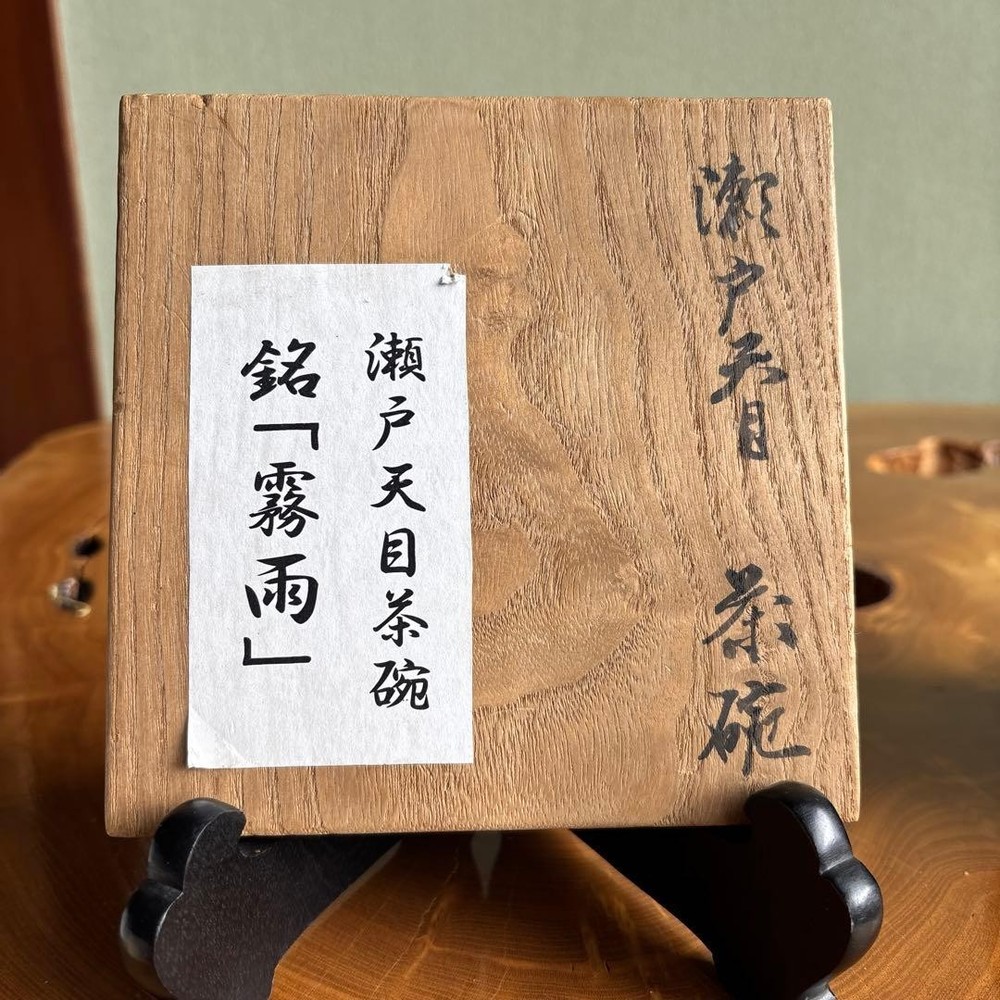 瀬戸天目 茶碗
瀬戸天目茶碗
銘「霧雨」